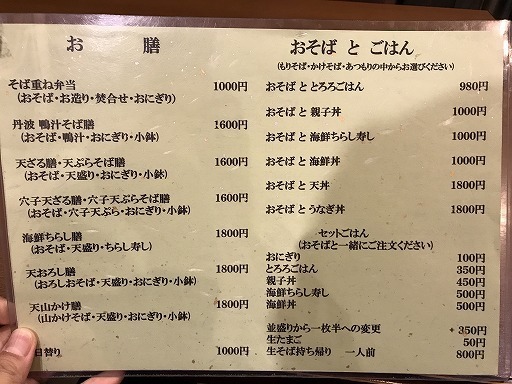 お 膳
そば重ね弁当 1000円
(おそば・お造り・焚合せ・おにぎり)
丹波 鴨汁そば膳 1600円
(おそば・鴨汁・おにぎり・小鉢)
天ざる膳・天ぷらそば膳 1600円
(おそば・天盛り・おにぎり・小鉢)
穴子天ざる膳・穴子天ぷらそば膳 1600円
(おそば・穴子天ぷら・おにぎり・小鉢)
海鮮ちらし膳 1800円
(おそば・天盛り・ちらし寿し)
天おろし膳 1800円
(おろしおそば・天盛り・おにぎり・小鉢)
天山かけ膳 1800円
(山かけそば・天盛り・おにぎり・小鉢)
日替り 1000円
おそば と ごはん
(もりそば・かけそば・あつもりの中からお選びください)
おそば と とろろごはん 980円
おそば と 親子丼 1000円
おそば と 海鮮ちらし寿し 1000円
おそば と 海鮮丼 1000円
おそば と 天丼 1800円
おそば と うなぎ丼 1800円
セットごはん
(おそばと一緒にご注文ください)
おにぎり 100円
とろろごはん 350円
親子丼 450円
海鮮ちらし寿し 500円
海鮮丼 500円
並盛りから一枚半への変更 + 350円
生たまご 50円
生そば持ち帰り 一人前 800円